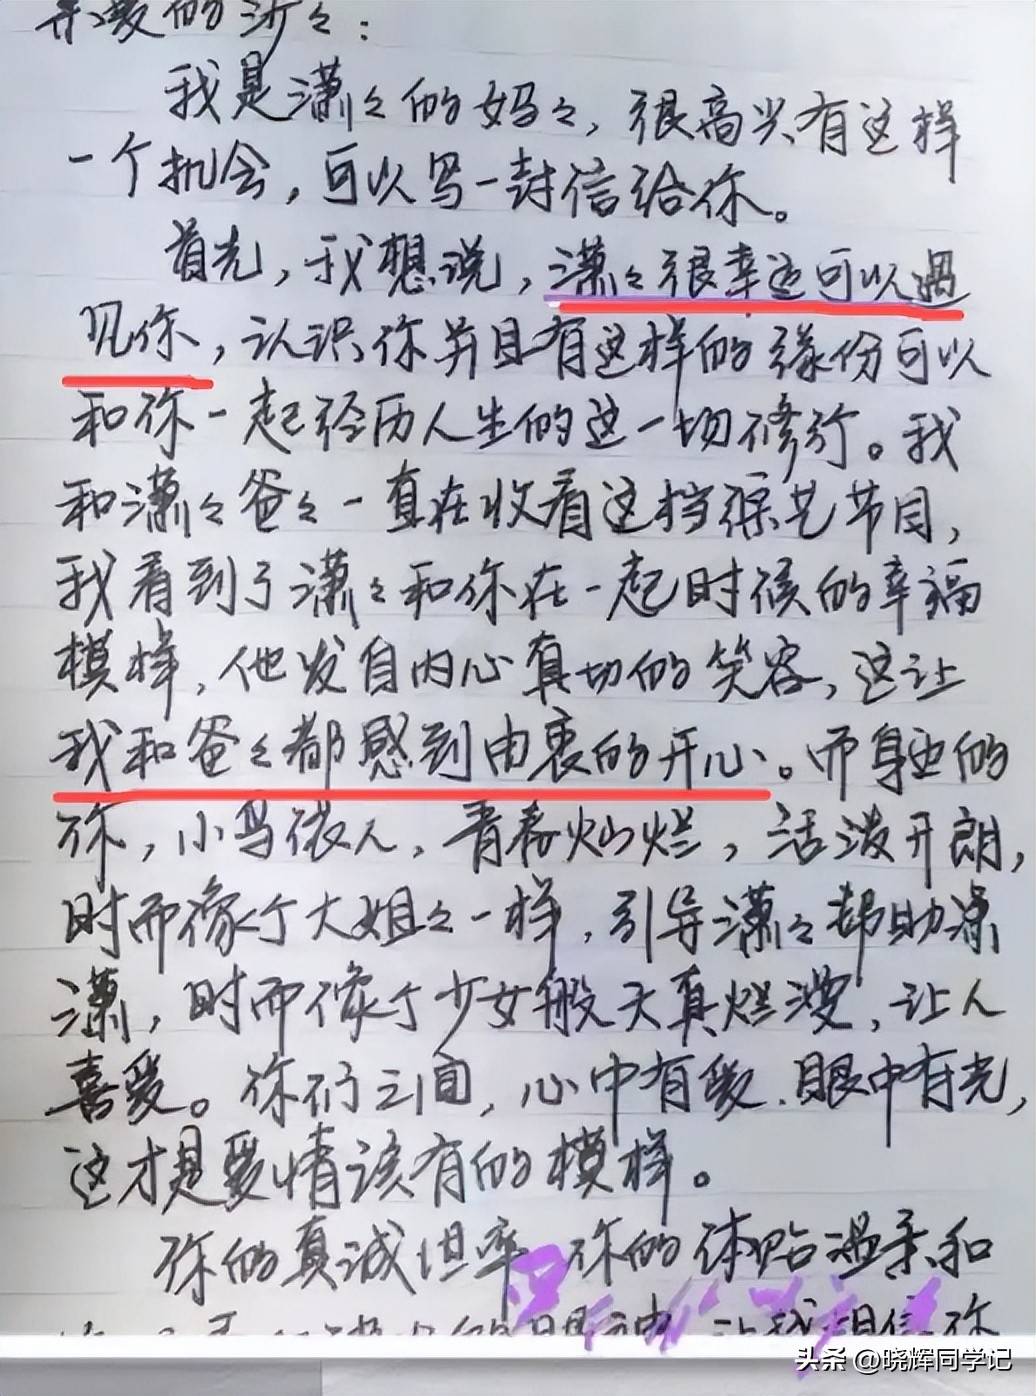 亲爱的沙々：
我是潇々的妈々，很高兴有这样
一个机会，可以写一封信给你。
首先，我想说，潇々很幸运可以遇
见你，认识你并且有这样的缘份可以
和你一起经历人生的这一场修行。我
和潇々爸々一直在收看这档综艺节目，
我看到了潇々和你在一起时候的幸福
模样，他发自内心真切的笑容，这让
我和爸々都感到由衷的开心。而身边的
你，小鸟依人，青春灿烂，活泼开朗，
时而像个大姐々一样，引导潇々帮助潇
潇，时而像个少女般天真烂漫，让人
喜爱。你们之间，心中有爱，眼中有光，
这才是爱情该有的模样。
你的真诚坦率，你的体贴温柔和
的眼神，让我相信你
头条 @晓辉同学记